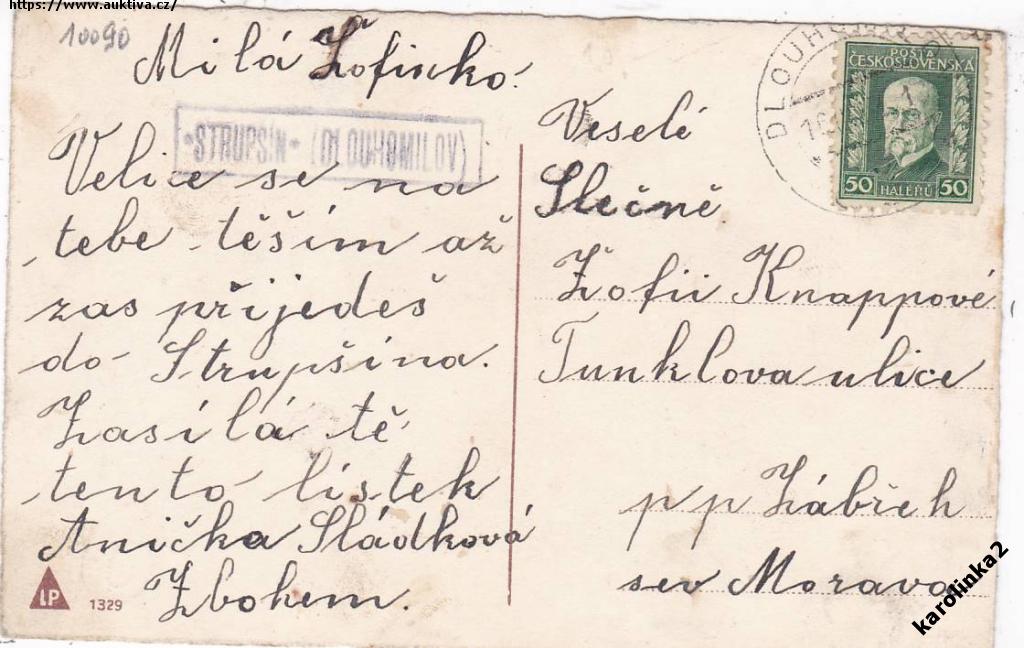 https://www.auktiva.cz/
10090
Milá Žofinko.
*STRUPŠÍN* (DLOUHOMILOV)
Velice se na
tebe těším až
zas přijedeš
do Strupšína.
Zasílá tě
tento lístek
Anička Sládková
Zbohem.
LP 1329
DLOUHO
POŠTA
ČESKOSLOVENSKÁ
50 HALÉŘŮ 50
Veselé
Slečně
Žofii Knappové
Tunklova ulice
pp Zábřeh
sev Morava
karolinka2